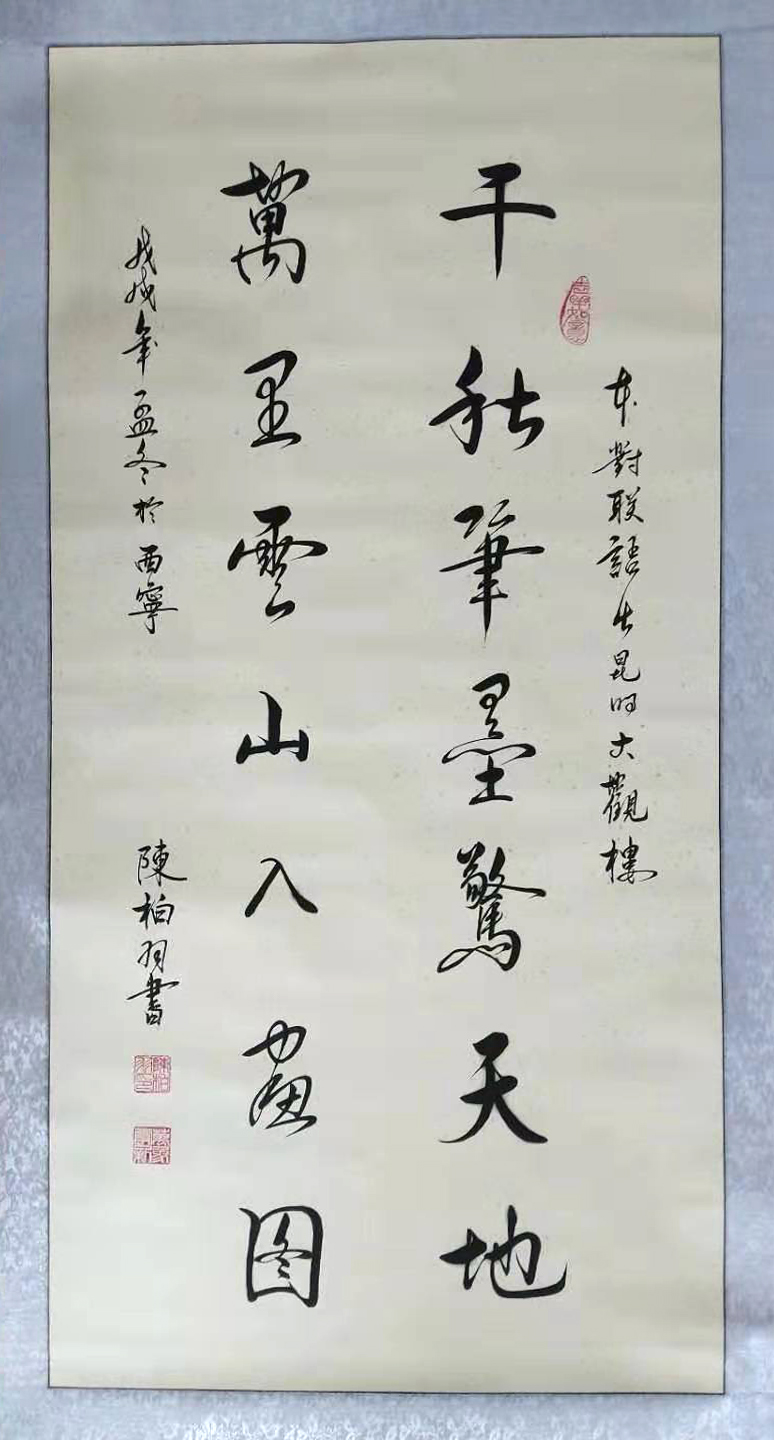 本對联語出昆明大觀樓
千秋筆墨驚天地
萬里雲山入畫图
戊戌年孟冬於西寧
陳柏羽書